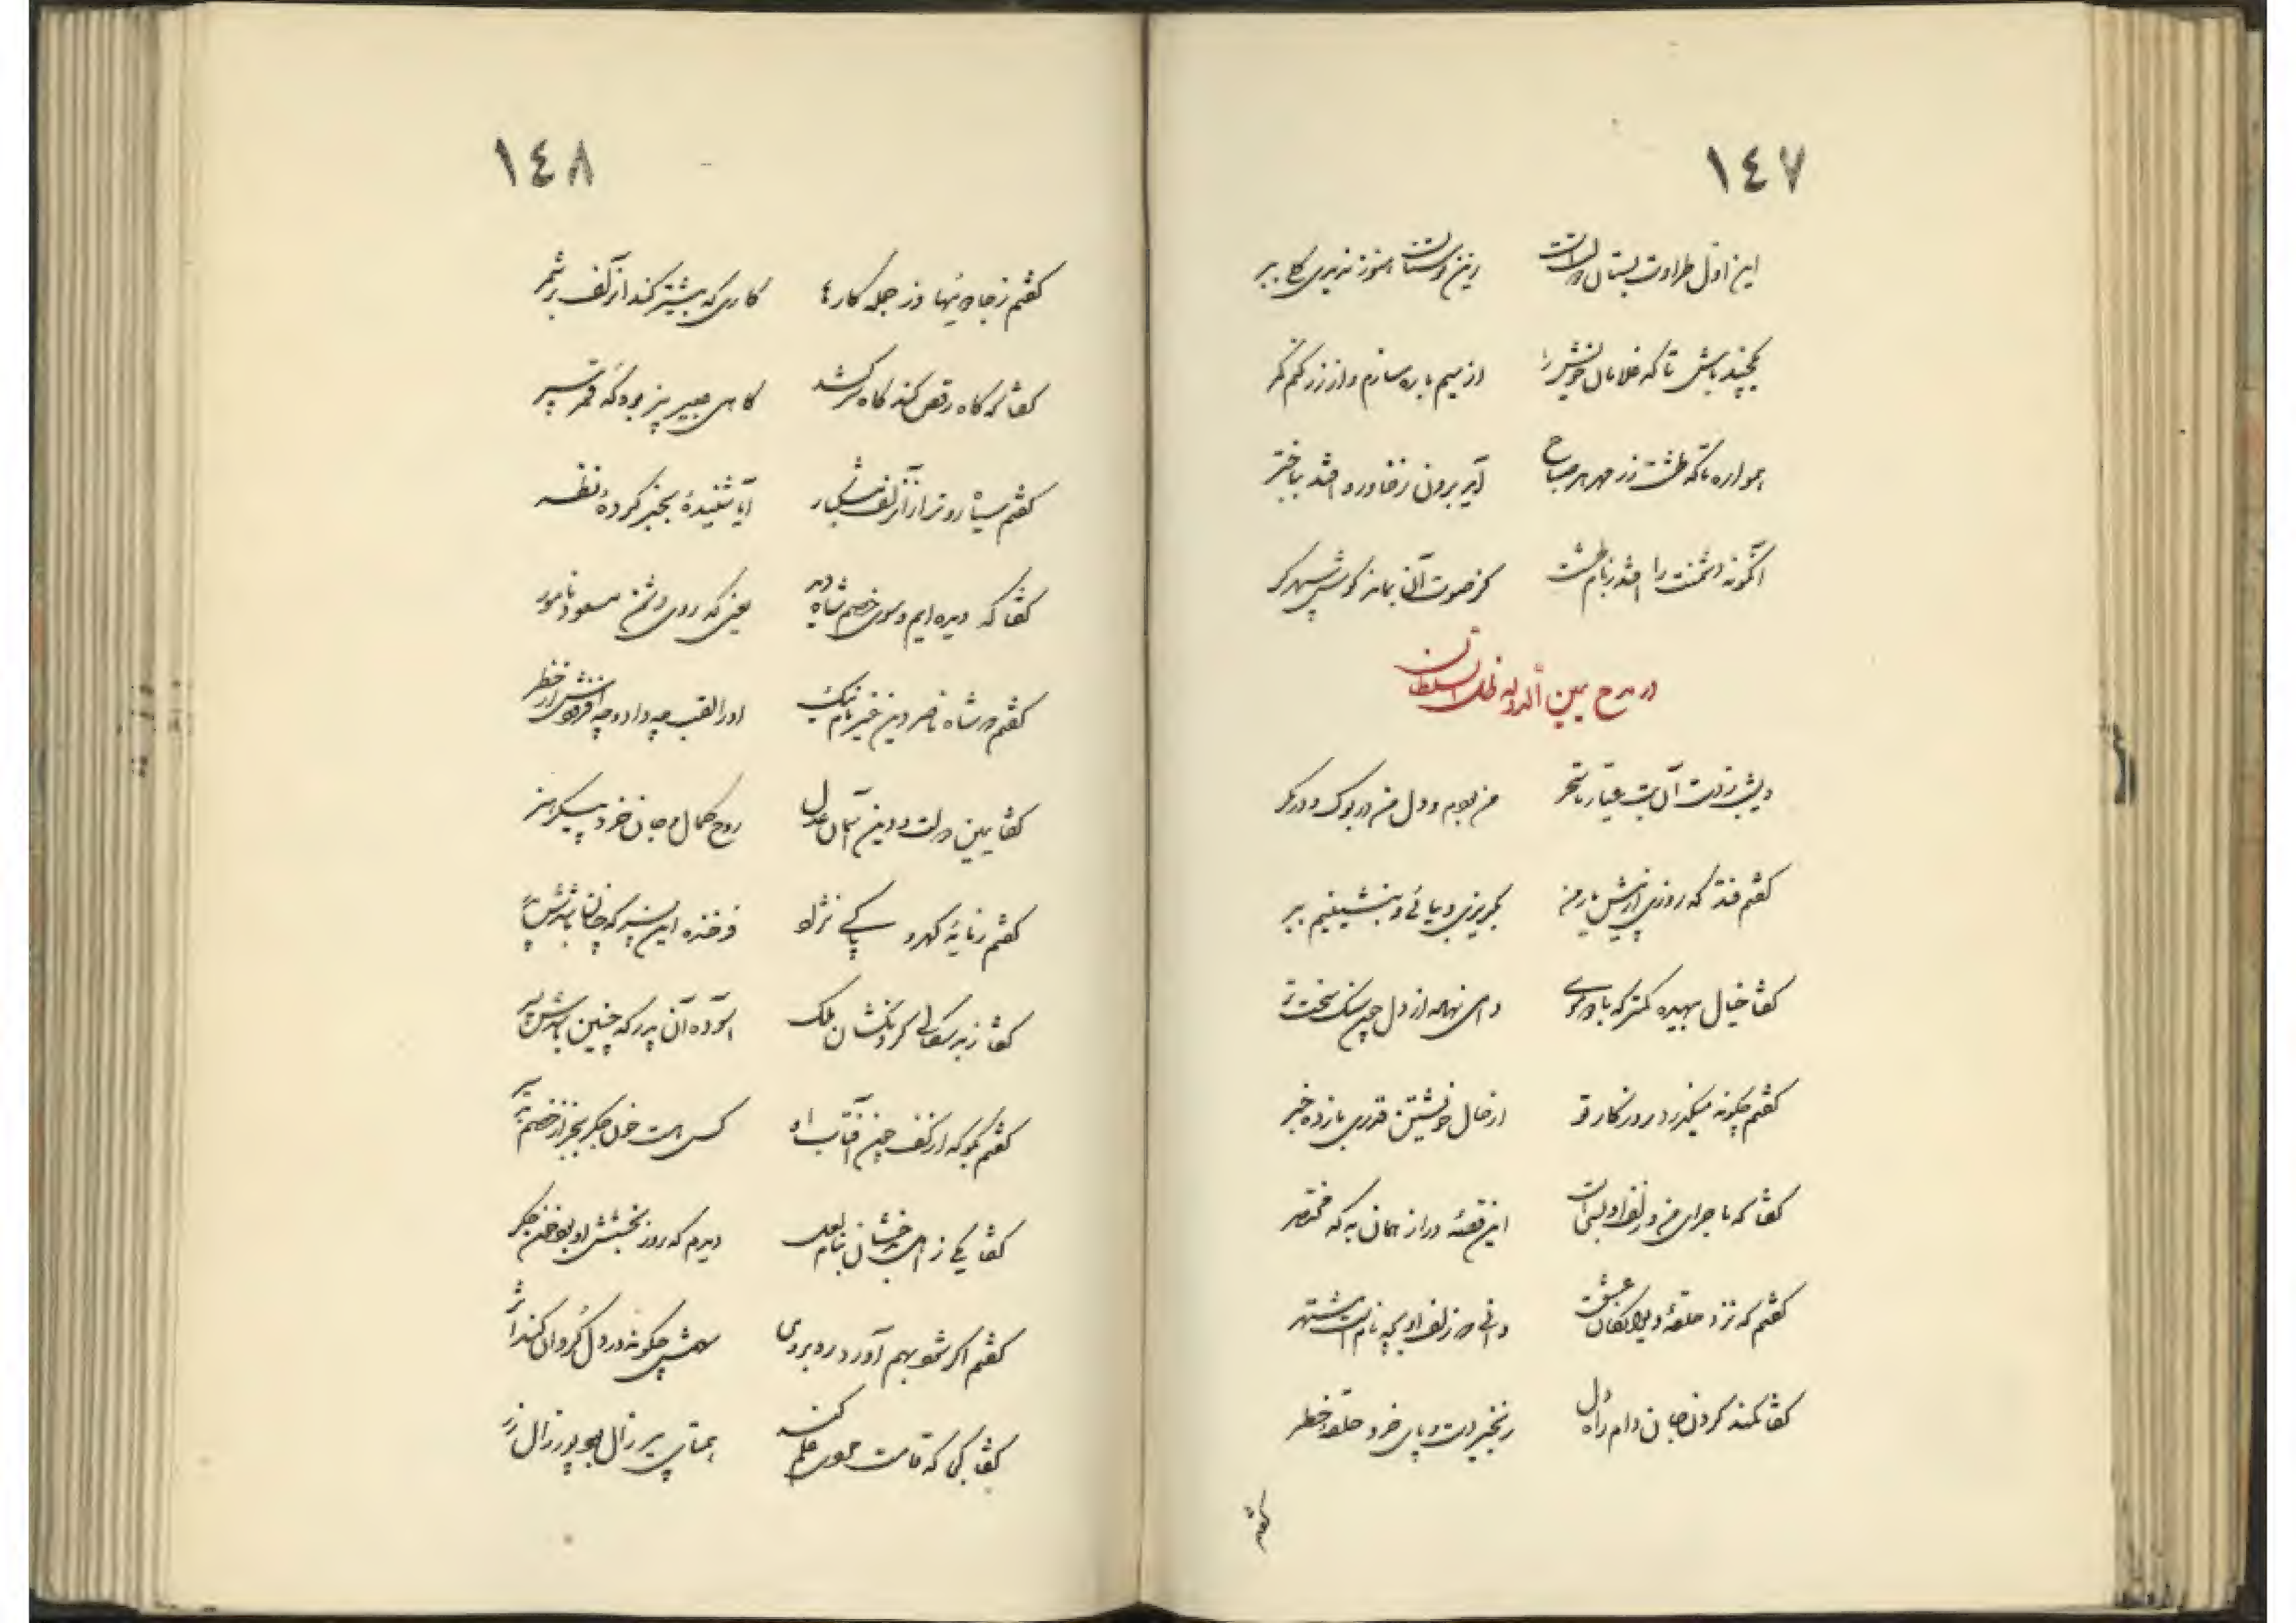 ١٤٧
این اول طراوت بستان دولت است
وین دوستان هنوز نزیبی کا ببر
یکچند باش تا که غلامان خویش را
از سیم باره سازم و از زر کنم کمر
همواره تا که طشت زر مهر هر صباح
آید برون ز خاور و افتد بباختر
آنگونه دشمنت را افتد ز بام طشت
کز صوت آن بماند گوش سپهر کر
در مدح یمین الدوله ظل السلطان
دیشب ز دست آن بت عیار تا سحر
من بودم و دل من در بوک و در مگر
گفتم فتد که روزی ازین پیش یار من
بگریزی و بیائی و بنشینیم ببر
گفتا خیال بیهده کمتر که با و موی
وای نهاله از دل چون سنگ سخت تر
گفتم چگونه میگذرد روزگار تو
از حال خویشتن قدری باز ده خبر
گفتا که ماجرای من و زلف او بس است
این قصهٔ دراز همان به که مختصر
گفتم که نزد حلقهٔ دیوانگان عشق
دانی که زلف او بچه نام است مشتهر
گفتا کمند گردن جان دام راه دل
زنجیر دست و پای خرد حلقهٔ خطر
گفتم
١٤٨
گفتم ز جادوئیها وز جمله کارها
کاری که بیشتر کند آن زلف بر شمر
گفتا که گاه رقص کند گاه سر کشد
گاهی عبیر بیز بود گه قمر سپر
گفتم سیاه روتر از آن زلف مشکبار
آیا شنیدهٔ بخبر کردهٔ نظر
گفتا که دیده ایم و سوی خصم شاه در
یعنی که روی دشمن مسعود نامور
گفتم که شاه ناصر دین خیر نام نیک
او را لقب چه داد و چه افزودش از خطر
گفتا یمین دولت و دین آسمان عدل
روح کمال و جان خرد پیکر هنر
گفتم زمایهٔ گهر و پاکی نژاد
فرخنده این پسر که چنان باشدش پدر
گفتا ز بد سگالی گردنکشان ملک
آسوده آن پدر که چنین باشدش پسر
گفتم بگو که از کف چون آفتاب او
کس هست خون جگر بجز از خصم
گفتا یکی ز اهل بدخشان بنام لعل
دیدم که روز بخشش او بود خون جگر
گفتم اگر شمو بهم آورد رو بروی
سهمش چگونه در دل گردان کند اثر
گفتا یکی که قامت چون علم کند
همتای پیر زال بود پور زال زر